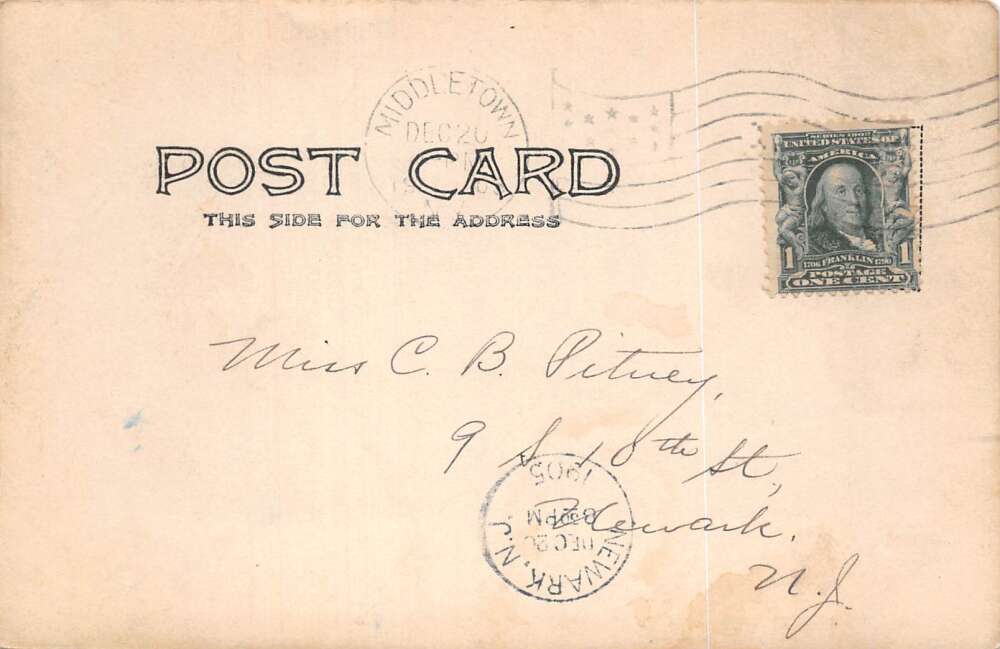 MIDDLETOWN
DEC 20
POST CARD
THIS SIDE FOR THE ADDRESS
SERIES 1902
UNITED STATES OF
AMERICA
1 1
1706 FRANKLIN 1790
POSTAGE
ONE CENT
Miss C. B. Pitney,
9 S 10th St,
Newark,
N.J.
NEWARK, N.J.
DEC 20
PM
1905